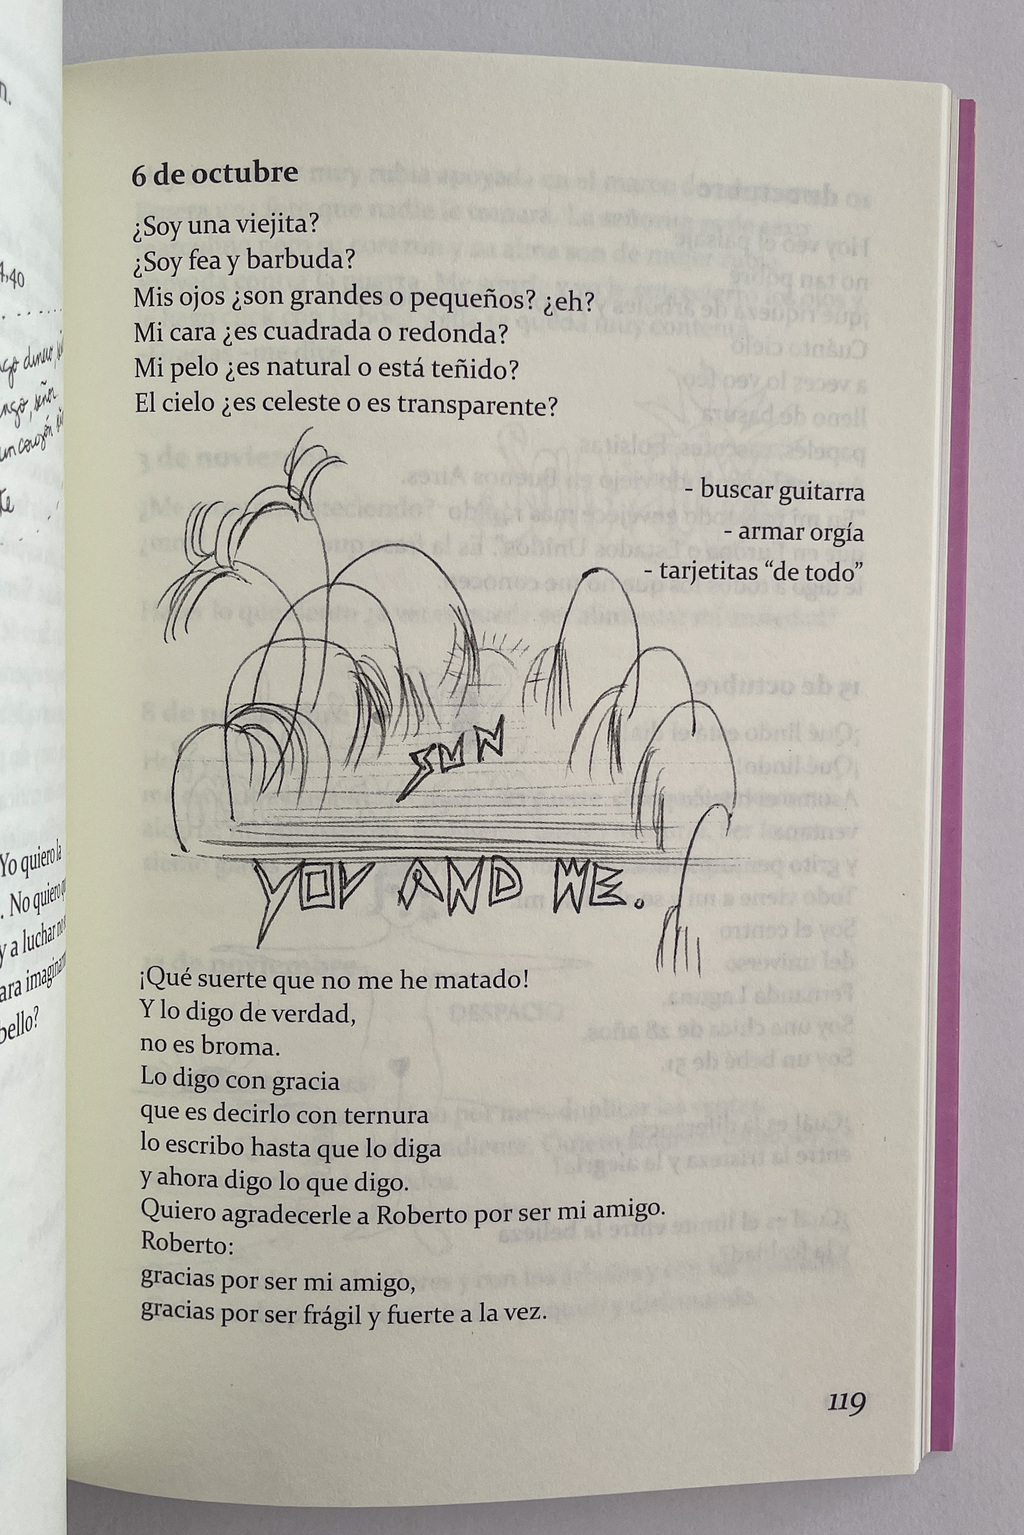 n.
4,40
Yo quiero la
. No quiero
y a luchar no
ara imaginar
bello?
6 de octubre
¿Soy una viejita?
¿Soy fea y barbuda?
Mis ojos ¿son grandes o pequeños? ¿eh?
Mi cara ¿es cuadrada o redonda?
Mi pelo ¿es natural o está teñido?
El cielo ¿es celeste o es transparente?
- buscar guitarra
- armar orgía
- tarjetitas “de todo”
SUN
YOU AND ME.
¡Qué suerte que no me he matado!
Y lo digo de verdad,
no es broma.
Lo digo con gracia
que es decirlo con ternura
lo escribo hasta que lo diga
y ahora digo lo que digo.
Quiero agradecerle a Roberto por ser mi amigo.
Roberto:
gracias por ser mi amigo,
gracias por ser frágil y fuerte a la vez.
119